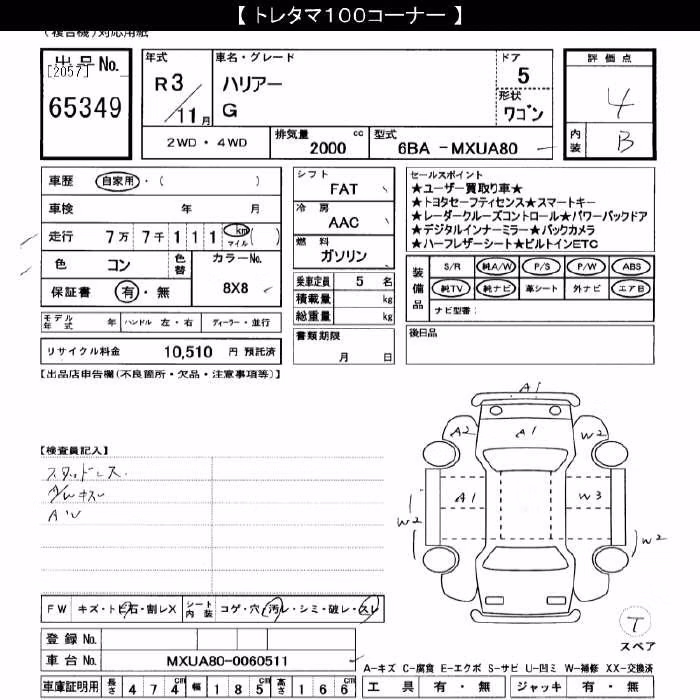 【 トレタマ100コーナー 】
(複合機)対応用紙
出品No.
[2057]
65349
年式
R3/11月
車名・グレード
ハリアー
G
ドア
5
形状
ワゴン
評価点
4
内装
B
2WD・4WD
排気量 cc
2000
型式
6BA -MXUA80
車歴 自家用・( )
車検 年 月
走行 7万7千111 km マイル ( )
色 コン
色替
カラーNo.
8X8
保証書 有・無
シフト
FAT
冷房
AAC
燃料
ガソリン
乗車定員 5 名
積載量 kg
総重量 kg
セールスポイント
★ユーザー買取り車★
★トヨタセーフティセンス★スマートキー
★レーダークルーズコントロール★パワーバックドア
★デジタルインナーミラー★バックカメラ
★ハーフレザーシート★ビルトインETC
装備品
S/R 純A/W P/S P/W ABS
純TV 純ナビ 革シート 外ナビ エアB
ナビ型番:
モデル年式 年 ハンドル 左・右 ディーラー・並行
リサイクル料金 10,510 円 預託済
書類期限
月 日
後日品
【出品店申告欄(不良箇所・欠品・注意事項等)】
【検査員記入】
スタッドレス.
A/Wキズ
A'U
A1
A2 A1 W2
A1 W3
W2 W2
FW キズ・トビ石・割レX シート内装 コゲ・穴・汚レ・シミ・破レ・スレ
登録 No.
車台 No. MXUA80-0060511
T
スペア
A-キズ C-腐食 E-エクボ S-サビ U-凹ミ W-補修 XX-交換済
車庫証明用 長さ 474cm 幅 185cm 高さ 166cm
工具 有・無 ジャッキ 有・無